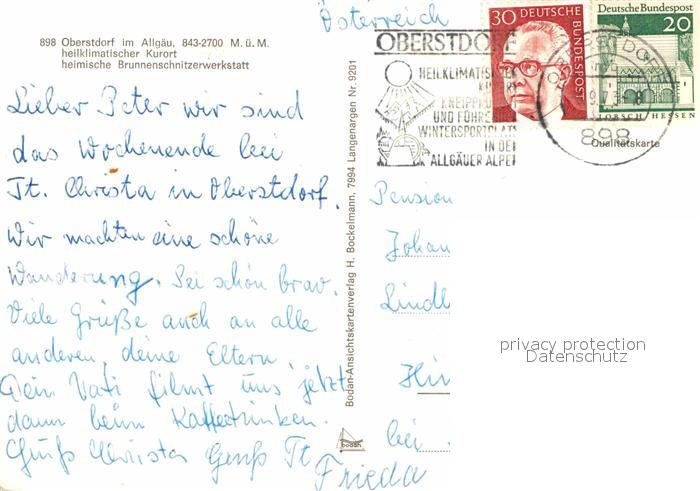 Österreich
898 Oberstdorf im Allgäu, 843-2700 M. ü. M.
heilklimatischer Kurort
heimische Brunnenschnitzerwerkstatt
Lieber Peter wir sind
das Wochenende bei
Tt. Christa in Oberstdorf.
Wir machten eine schöne
Wanderung. Sei schön brav.
Viele Grüße auch an alle
anderen, deine Eltern
Dein Vati filmt uns jetzt
dann beim Kaffeetrinken.
Gruß Christa Gruß Tt
Frieda
Bodan-Ansichtskartenverlag H. Bockelmann, 7994 Langenargen Nr. 9201
bodan
30 DEUTSCHE BUNDESPOST
Deutsche Bundespost
20
LORSCH HESSEN
OBERSTDORF
HEILKLIMATISCHER
UND FÜHRE
WINTERSPORTPLATZ
IN DEN
ALLGÄUER ALPEN
OBERSTDORF
898
Qualitätskarte
Pension
Johan
Lindl
Hin
bei
privacy protection
Datenschutz